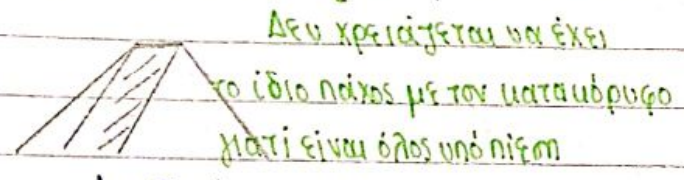 Δεν χρειάζεται να έχει
το ίδιο πάχος με τον κατακόρυφο
γιατί είναι όλος υπό πίεση